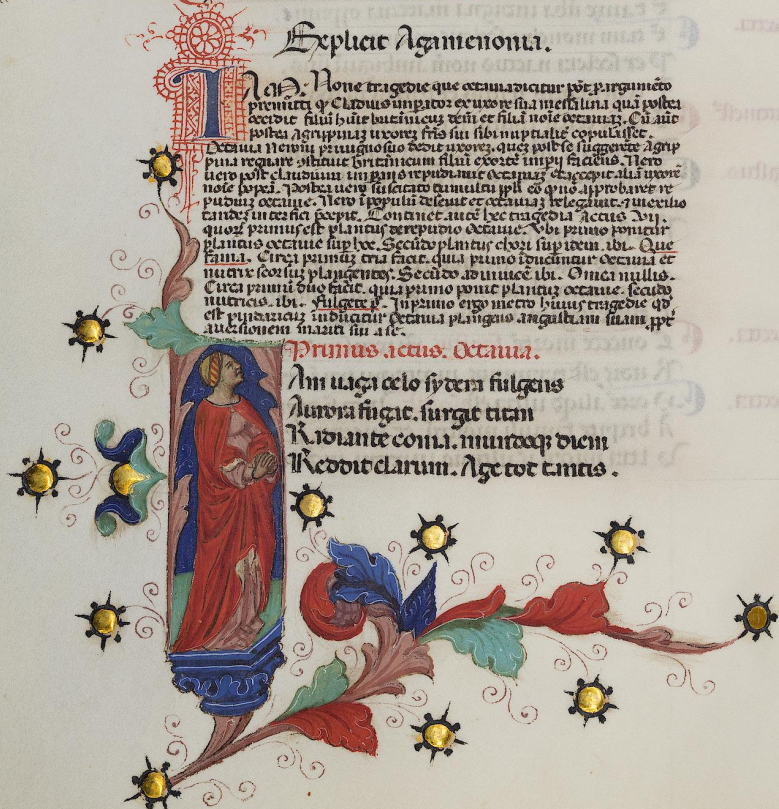 Explicit Agamenonia.
IAm. None tragedie que octauia dicitur põt pargumẽto
premitti q̃ Cladius imꝑator ex uxore sua messalina quã postea
occidit filiũ hũit britãnicus dẽm et filiã noĩe octauiaʒ. Cũ aũt
postea Agrippinaʒ uxoreʒ fr̃is sui sibi nuptialit̃ copulasset.
Octauia Neroni priuigno suo dedit uxoreʒ. queʒ post se suggerẽte Agrip
pina regnare
uero post claudium repudiauit octauiaʒ et accepit aliã uxorẽ
noĩe popeã. Postea uero suscitato tumultu ppl̃i eo q̃ nõ approbaret re
pudiuʒ octauie. Nero ĩ populũ deseuit et octauiaʒ relegauit. ⁊ in exilio
tandeʒ interfici fecit. Continet autẽ hec tragedia Actus VII.
quorʒ primus est planctus de repudio octauie. Vbi primo ponitur
planctus octauie sup hoc. Secũdo planctus chori sup idem. ibi. Que
fama. Circa primuʒ tria facit. quia primo ĩducuntur octauia et
nutrix seorsuʒ plangentes. Secũdo ad inuiceʒ ibi. O mea nullis.
Circa primũ duo facit. quia primo ponit planctuʒ octauie. secũdo
nutricis. ibi. Fulgete. In primo ergo metro huius tragedie qd̃
est pindaricuʒ inducitur Octauia plangens angustiam suam ꝓpt̃
auersionem mariti sui a se.
Primus actus. Octauia.
Am uaga celo sydera fulgens
Aurora fugat. surgit titan
Radiante coma. mundoq̃ diem
Reddit clarum. Age tot tantis.